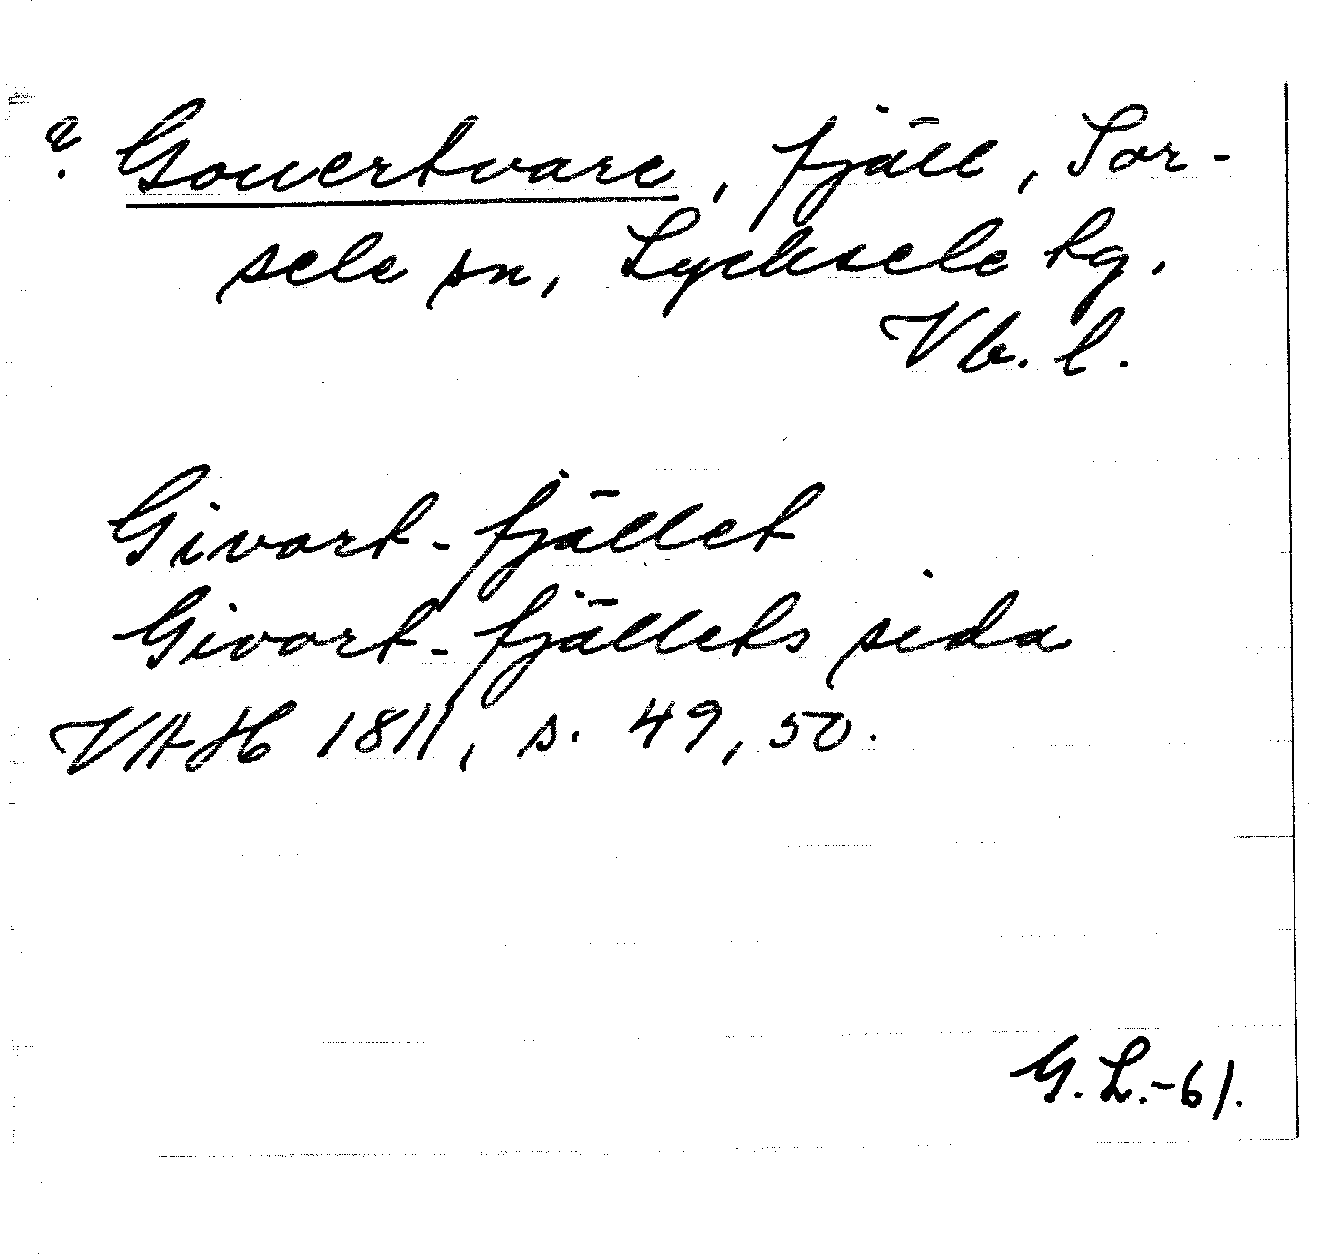 ? Gouertvare, fjäll, Sor-
sele sn, Lycksele tg.
Vb. l.
Givort-fjället
Givort-fjällets sida
VAH 1811, s. 49, 50.
G. L.-61.